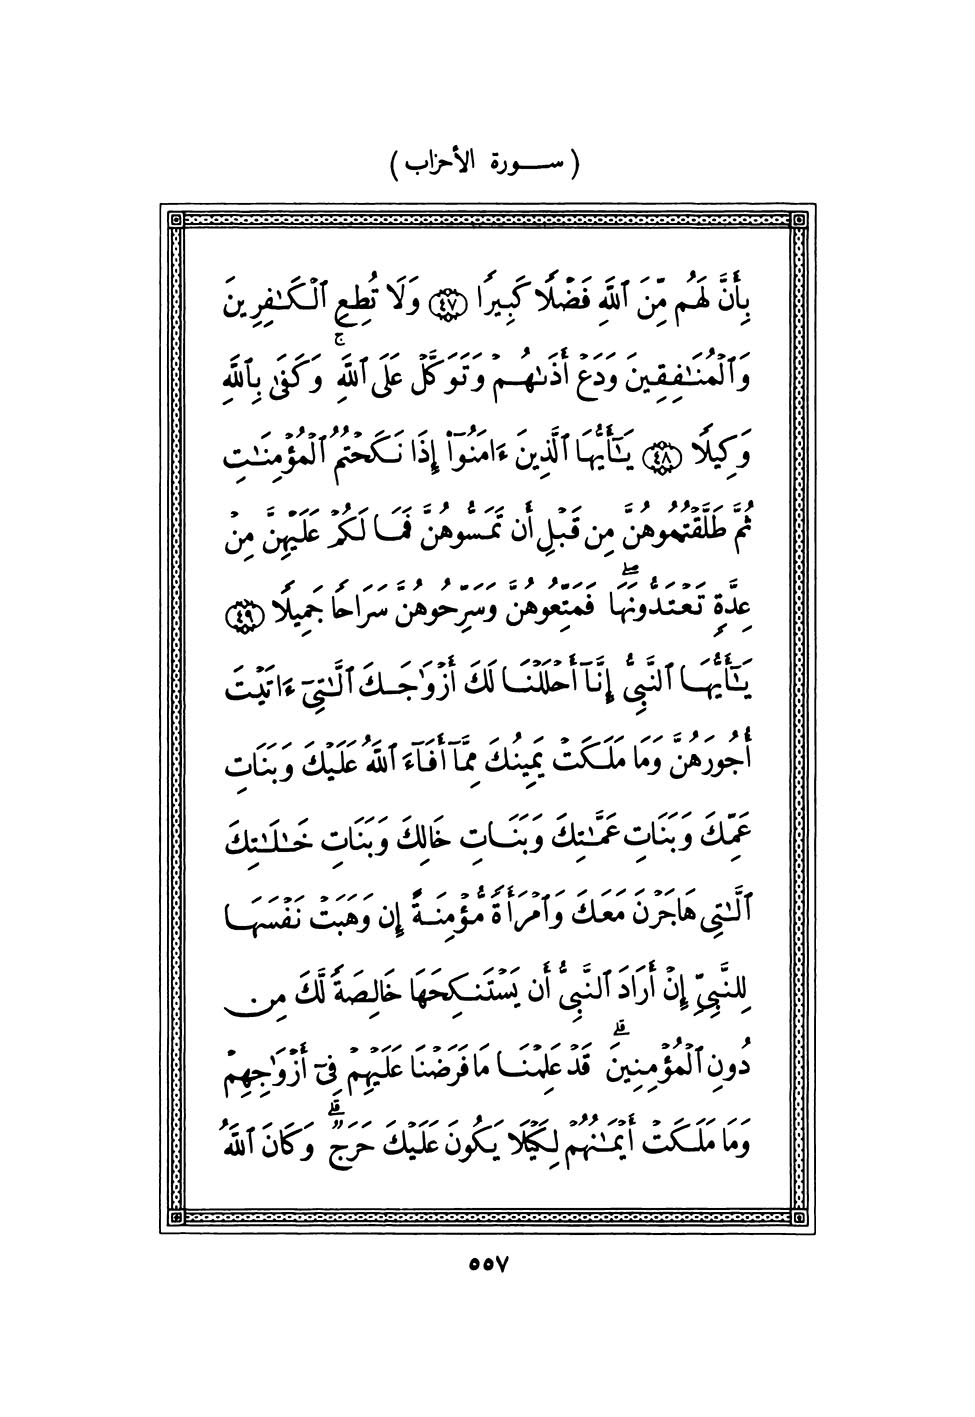 (ســورة الأحزاب)
بِأَنَّ لَهُم مِّنَ ٱللَّهِ فَضْلًا كَبِيرًا ﴿٤٧﴾ وَلَا تُطِعِ ٱلْكَـٰفِرِينَ
وَٱلْمُنَـٰفِقِينَ وَدَعْ أَذَىٰهُمْ وَتَوَكَّلْ عَلَى ٱللَّهِ ۚ وَكَفَىٰ بِٱللَّهِ
وَكِيلًا ﴿٤٨﴾ يَـٰٓأَيُّهَا ٱلَّذِينَ ءَامَنُوٓا۟ إِذَا نَكَحْتُمُ ٱلْمُؤْمِنَـٰتِ
ثُمَّ طَلَّقْتُمُوهُنَّ مِن قَبْلِ أَن تَمَسُّوهُنَّ فَمَا لَكُمْ عَلَيْهِنَّ مِنْ
عِدَّةٍ تَعْتَدُّونَهَا ۖ فَمَتِّعُوهُنَّ وَسَرِّحُوهُنَّ سَرَاحًا جَمِيلًا ﴿٤٩﴾
يَـٰٓأَيُّهَا ٱلنَّبِىُّ إِنَّآ أَحْلَلْنَا لَكَ أَزْوَٰجَكَ ٱلَّـٰتِىٓ ءَاتَيْتَ
أُجُورَهُنَّ وَمَا مَلَكَتْ يَمِينُكَ مِمَّآ أَفَآءَ ٱللَّهُ عَلَيْكَ وَبَنَاتِ
عَمِّكَ وَبَنَاتِ عَمَّـٰتِكَ وَبَنَاتِ خَالِكَ وَبَنَاتِ خَـٰلَـٰتِكَ
ٱلَّـٰتِى هَاجَرْنَ مَعَكَ وَٱمْرَأَةً مُّؤْمِنَةً إِن وَهَبَتْ نَفْسَهَا
لِلنَّبِىِّ إِنْ أَرَادَ ٱلنَّبِىُّ أَن يَسْتَنكِحَهَا خَالِصَةً لَّكَ مِن
دُونِ ٱلْمُؤْمِنِينَ ۗ قَدْ عَلِمْنَا مَا فَرَضْنَا عَلَيْهِمْ فِىٓ أَزْوَٰجِهِمْ
وَمَا مَلَكَتْ أَيْمَـٰنُهُمْ لِكَيْلَا يَكُونَ عَلَيْكَ حَرَجٌ ۗ وَكَانَ ٱللَّهُ
٥٥٧